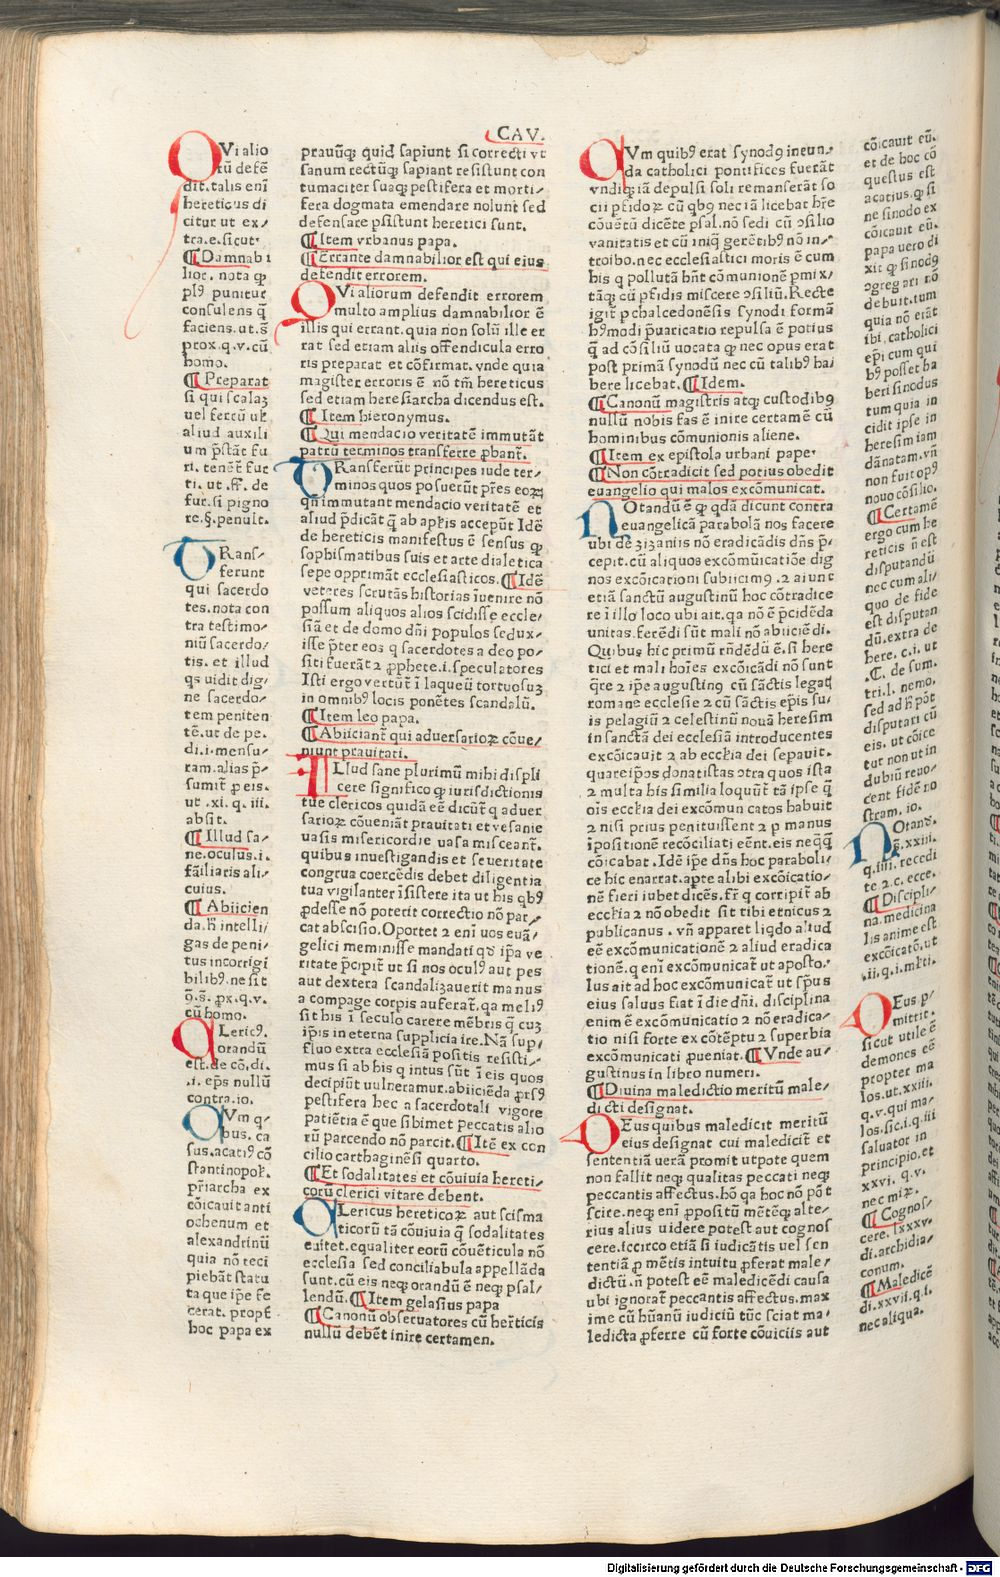 CAV.
QVi alio
rū defē
dit.talis enī
hereticus di
citur ut ex/
tra.e.sicut
¶Damnabi
lior. nota ꝙ
plꝰ punitur
consulens q̄
faciens.ut.s̄
prox.q.v.cū
homo.
¶Preparat
si qui scalaʒ
uel ferrū ul̄
aliud auxili
um p̄stāt fu
ri. tenēt̄ fur
ti. ut .ff. de
fur.si pigno
re.§.penult.
TRans/
ferunt
qui sacerdo
tes.nota con
tra testimo/
niū sacerdo/
tis. et illud
qs uidit dig/
ne sacerdo/
tem peniten
tē.ut de pe.
di.i.mensu/
ram.alias p̄/
sumit̄ ꝓ eis.
ut .xi. q. iii.
absit.
¶Illud sa/
ne.oculus.i.
fāiliaris ali/
cuius.
¶Abiicien
da.h̄ intelli/
gas de peni/
tus incorrigi
bilibꝰ.ne sit
ꝯ.s̄. ꝓx.q.v.
cū homo.
CLericꝰ.
orandū
est.de cō.di.
.i. ep̄s nullū
contra.io.
CVm q/
bus. ca
sus.acatiꝰ cō
stantinopol̄.
pr̄iarcha ex
cōicauit anti
ochenum et
alexandrinū
quia nō reci
piebāt statu
ta que ip̄e fe
cerat. propt̄
hoc papa ex
prauūqꝫ quid sapiunt si correcti vt
sanum rectūqꝫ sapiant resistunt con
tumaciter suaqꝫ pestifera et morti/
fera dogmata emendare nolunt sed
defensare ꝑsistunt heretici sunt.
¶Item vrbanus papa.
¶Errante damnabilior est qui eius
defendit errorem.
QVi aliorum defendit errorem
multo amplius damnabilior ē
illis qui errant.quia non solū ille er
rat sed etiam aliis offendicula erro
ris preparat et cōfirmat.vnde quia
magister erroris ē nō tm̄ hereticus
sed etiam heresiarcha dicendus est.
¶Item hieronymus.
¶Qui mendacio veritatē immutāt
patrū terminos transferre ꝓbant̄.
TRansferūt principes iude ter/
minos quos posuerūt p̄res eoꝝ
qn̄ immutant mendacio veritatē et
aliud p̄dicāt q̄ ab apl̄is acceper̄t Idē
de hereticis manifestus ē sensus ꝙ
sophismatibus suis et arte dialetica
sepe opprimāt ecclesiasticos.¶Idē
veteres scrutās historias īuenire nō
possum aliquos alios scidisse eccle/
siā et de domo dn̄i populos sedux/
isse p̄ter eos q sacerdotes a deo po/
siti fuerāt ⁊ ꝓphete.i.speculatores
Isti ergo vertūt̄ ī laqueū tortuosuʒ
in omnibꝰ locis ponētes scandalū.
¶Item leo papa.
¶Abiiciant̄ qui aduersarioꝝ cōue/
niunt prauitati.
ILlud sane plurimū mihi displi
cere significo ꝙ iurisdictionis
tue clericos quidā eē dicūt̄ q aduer
sarioꝝ cōueniāt prauitati et vesanie
uasis misericordie uasa misceant̄.
quibus inuestigandis et seueritate
congrua coercēdis debet diligentia
tua vigilanter īsistere ita ut his qbꝰ
ꝓdesse nō poterit correctio nō par/
cat abscisio.Oportet ⁊ enī uos euā/
gelici meminisse mandati qd̄ ip̄a ve
ritate p̄cipit̄ ut si nos oculꝰ aut pes
aut dextera scandalizauerit manus
a compage corpis auferat̄.qa meliꝰ
sit his ī seculo carere mēbris q̄ cuʒ
ip̄is in eterna supplicia ire.Nā suꝑ/
fluo extra ecclesiā positis resisti/
mus si ab his q intus sūt ī eis quos
decipiūt uulneramur.abiiciēda ꝓrsꝰ
pestifera hec a sacerdotali vigore
patiētia ē que sibimet peccatis alio
rū parcendo nō parcit.¶Itē ex con
cilio carthaginēsi quarto.
¶Et sodalitates et cōuiuia hereti/
corū clerici vitare debent.
CLericus hereticoꝝ aut scisma
ticorū tā cōuiuia q̄ sodalitates
euitet.equaliter eorū cōuēticula nō
ecclesia sed conciliabula appellāda
sunt.cū eis neqꝫ orandū ē neqꝫ psal/
lendū.¶Item gelasius papa
¶Canonū obseruatores cū her̄ticis
nullū debēt inire certamen.
CVm quibꝰ erat synodꝰ ineun/
da catholici pontifices fuerāt
vndiqꝫ iā depulsi soli remanserāt so
cii ꝑfidoꝝ cū qbꝰ nec iā licebat hr̄e
cōuētū dicēte psal.nō sedi cū ꝯsilio
vanitatis et cū iniq̄ gerētibꝰ nō in/
troibo.nec ecclesiastici moris ē cum
his q pollutā hn̄t cōmunionē ꝑmix/
tāqꝫ cū ꝑfidis miscere ꝯsiliū.Recte
igit̄ ꝑ chalcedonēsis synodi formā
hꝰmodi p̄uaricatio repulsa ē potius
q̄ ad cōsiliū uocata ꝙ nec opus erat
post primā synodū nec cū talibꝰ ha/
bere licebat.¶Idem.
¶Canonū magistris atqꝫ custodibꝰ
nullū nobis fas ē inire certamē cū
hominibus cōmunionis aliene.
¶Item ex epistola urbani pape
¶Non cōtradicit sed potius obedit
euangelio qui malos excōmunicat.
NOtandū ē ꝙ qdā dicunt contra
euangelicā parabolā nos facere
ubi de zizaniis nō eradicādis dn̄s p̄/
cepit.cū aliquos excōmūicatiōe dig
nos excōicationi subiicimꝰ.⁊ aiunt
etiā sanctū augustinū hoc cōtradice
re ī illo loco ubi ait.qa nō ē p̄cidēda
unitas.ferēdi sūt mali nō abiiciēdi.
Quibus hic primū rn̄dēdū ē.si here
tici et mali hoīes excōicādi nō sunt
q̄re ⁊ ip̄e augustinꝰ cū sāctis legat̄
romane ecclesie ⁊ cū sāctis ep̄is su/
is pelagiū ⁊ celestinū nouā heresim
in sanctā dei ecclesiā introducentes
excōicauit ⁊ ab eccl̄ia dei sepauit.
quare ip̄os donatistas ꝯtra quos ista
⁊ multa his similia loquūt̄ tā ip̄e q̄
oīs eccl̄ia dei excōmunicatos habuit
⁊ nisi prius penituissent ⁊ ꝑ manus
īpositionē recōciliati eēnt.eis neqq̄
cōicabat.Idē ip̄e dn̄s hoc paraboli/
ce hic enarrat.apte alibi excōicatio/
nē fieri iubet dicēs.fr̄ q corripit̄ ab
eccl̄ia ⁊ nō obedit sit tibi etnicus ⁊
publicanus.vn̄ apparet liqdo aliud
eē excōmunicationē ⁊ aliud eradica
tionē.q enī excōmunicat̄ ut aposto.
lus ait ad hoc excōmunicat̄ ut sp̄us
eius saluus fiat ī die dn̄i. disciplina
enim ē excōmunicatio ⁊ nō eradica/
tio nisi forte ex cōtēptu ⁊ superbia
excōmunicati ꝓueniat.¶Vnde au/
gustinus in libro numeri.
¶Diuina maledictio meritū male/
dicti designat.
DEus quibus maledicit meritū
eius designat cui maledicit̄ et
sententiā uerā promit utpote quem
non fallit neqꝫ qualitas peccati neqꝫ
peccantis affectus.hō qa hoc nō pōt
scire.neqꝫ enī ꝓpositū mētēqꝫ alte/
rius alius uidere potest aut cognos
cere.iccirco etiā si iudicātis uel sen
tentiā ꝑ mētis intuitu ꝓferat male/
dictū.n̄ potest eē maledicēdi causa
ubi ignorat̄ peccantis affectus.max
ime cū hūanū iudiciū tūc sciat ma/
ledicta ꝓferre cū forte cōuiciis aut
cōicauit eū.
et de hoc cō
questus est
acatius.ꝙ si
ne sinodo ex
cōicauit eū.
papa uero di
xit ꝙ sinodꝰ
ꝯgregari nō
debuit.tum
quia nō erāt
ibi catholici
ep̄i cum qui
bꝰ posset ha
beri sinodus
tum quia in
cidit ipse in
heresim iam
dānatam.vn̄
non fuit opꝰ
nouo cōsilio.
¶Certamē
ergo cum he
reticis n̄ est
disputandū
nec cum ali/
quo de fide
est disputan
dū.extra de
here. c.i. ut
.C. de sum.
tri.l. nemo.
sed ad h̄ pōt
disputari cū
eis. ut cōice
tur non ut in
dubiū reuo/
cent fidē no
stram. io.
NOtandū.
ē.xxiii.
q.iiii. recedi
te ⁊.c. ecce.
¶Discipli/
na.medicina
lis anime est
excōicatō.ut
.ii.q.i.ml̄ti.
DEus p/
mittit.
sicut utile ē
demones eē
propter ma
los.ut.xxiii.
q.v.qui ma/
los.sic.i.q.iii
saluator in
principio.et
xxvi. q.v.
nec miꝝ.
¶Cognos/
cere.lxxxv.
di.archidia/
conum.
¶Maledicē
di.xxvii.q.i.
nec aliqua.
Digitalisierung gefördert durch die Deutsche Forschungsgemeinschaft - DFG